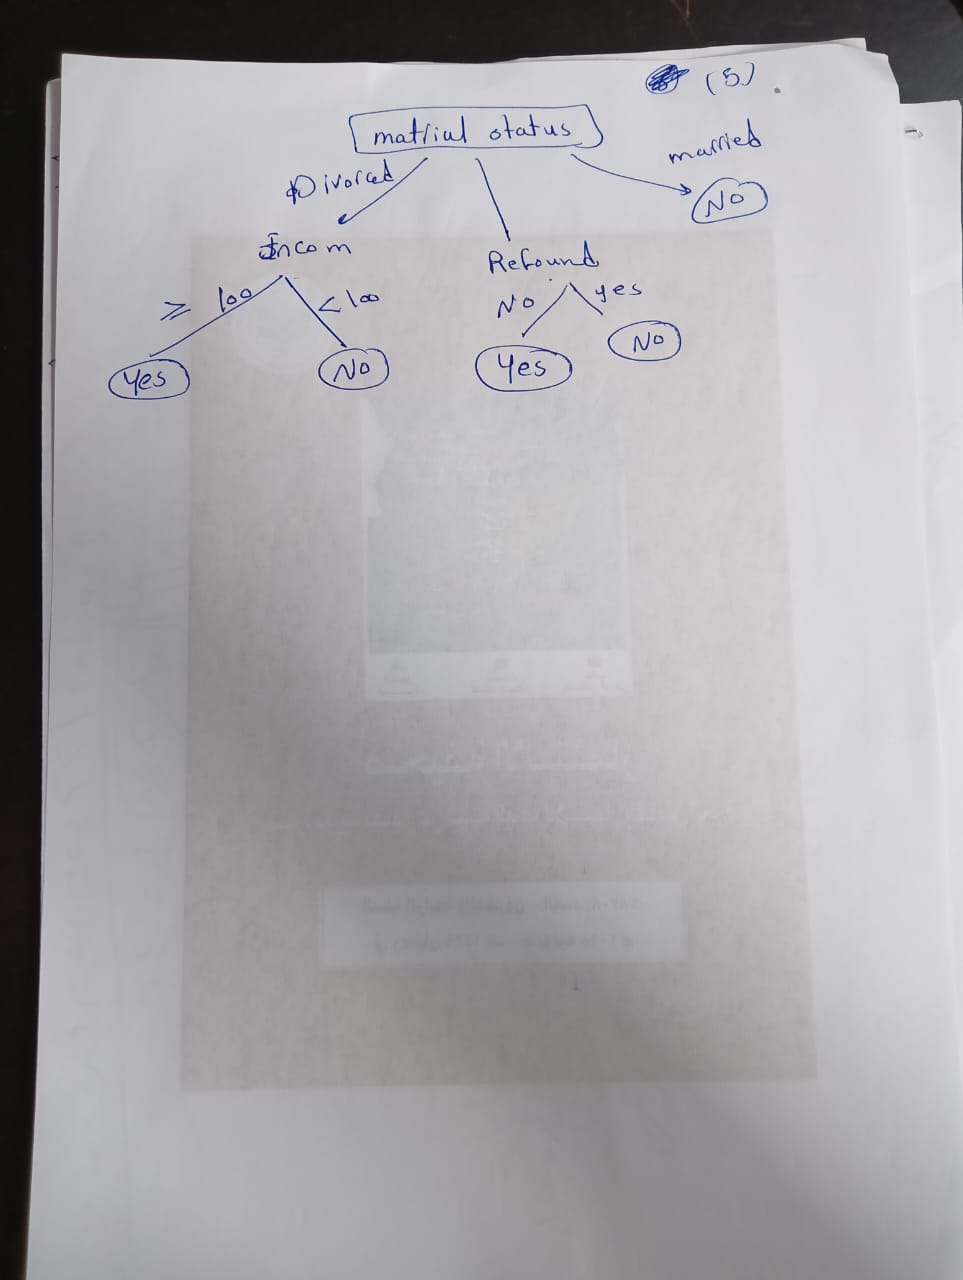 (5)
matrial status
Divorced
married
No
Incom
Refound
≥ 100
<100
No
yes
Yes
No
Yes
No